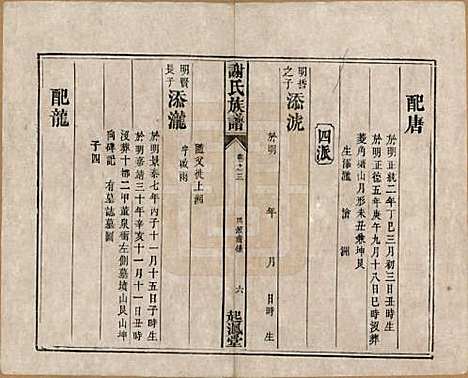 配唐
於明正統二年丁巳三月初三日丑時生
於明正德五年庚午九月十八日巳時沒葬
菱角塘山月形未丑兼坤艮
生添 滄 洲
四派
明哲之子
添淲
於明 年 月 日 時生
謝氏族譜
卷之三
六
起鳳堂
明賢長子
添瀧
隨父徙上湘
字啟南
於明景泰七年丙子十一月十五日子時生
於明嘉靖三十年辛亥十一月十一日丑時
沒葬十都二甲董泉衝左側墓塘山艮坤
向碑記 有墓誌墓圖
子四
配龍